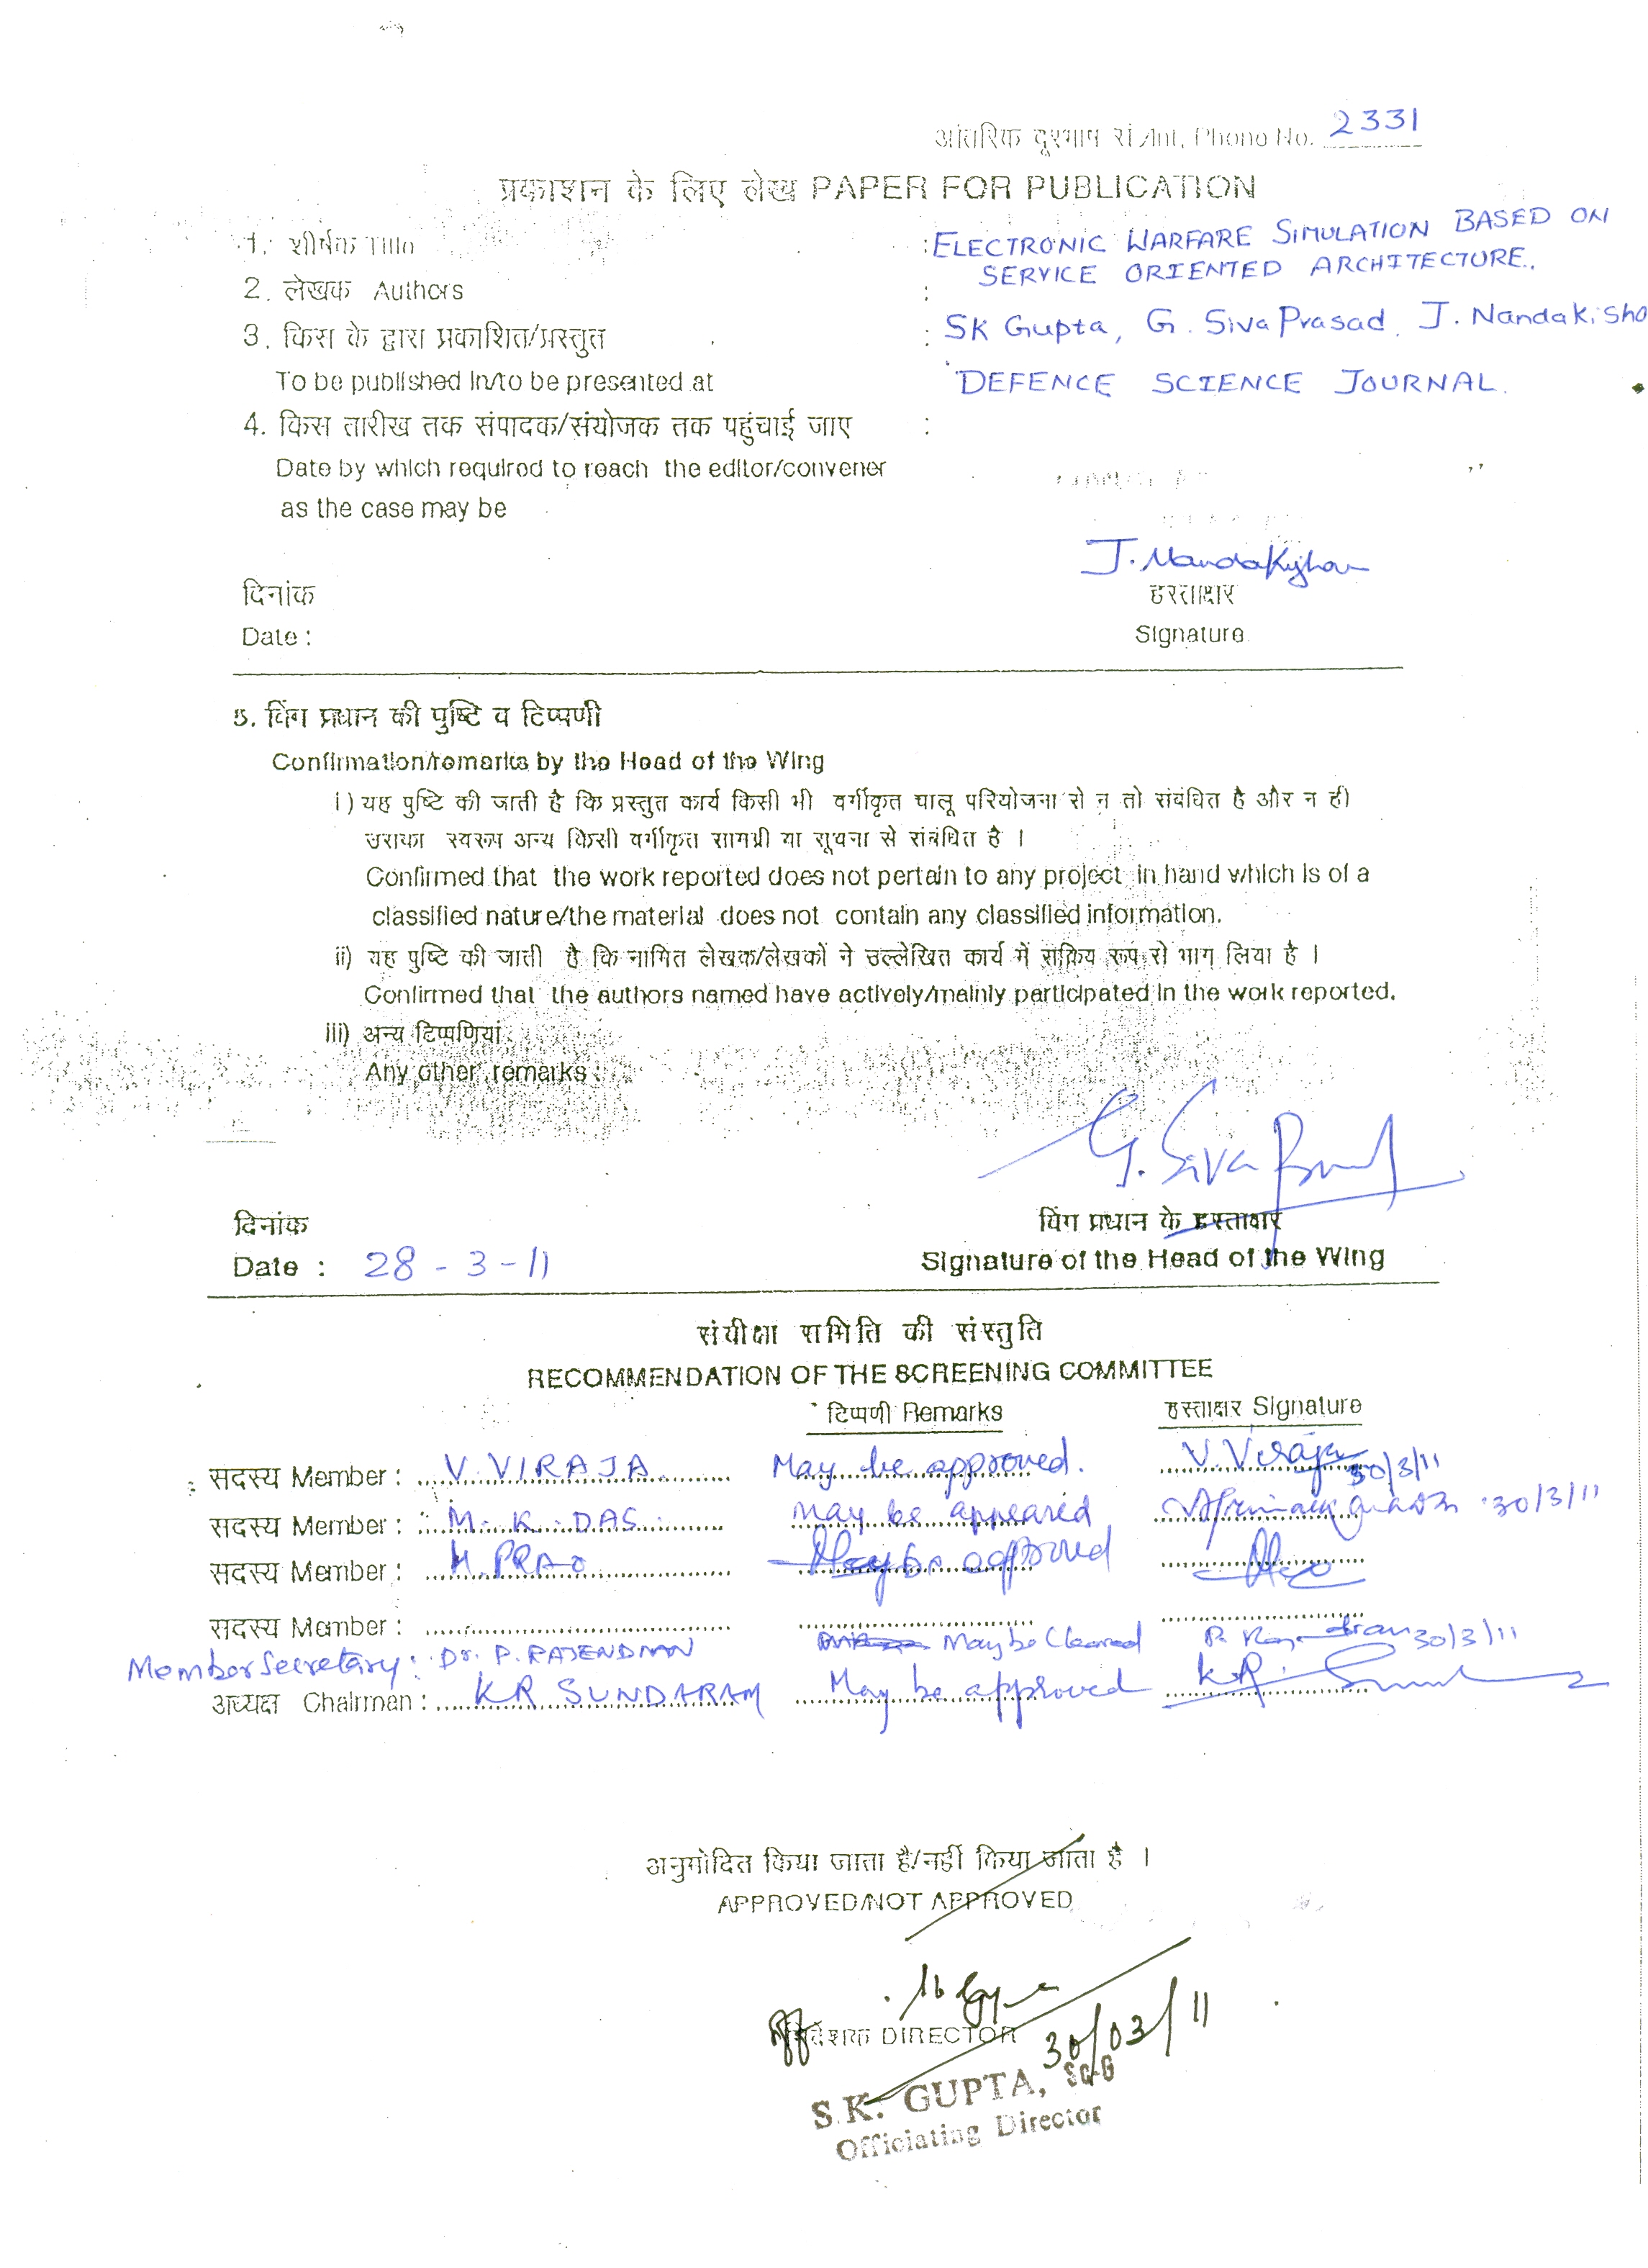 आंतरिक दूरभाष सं./Int. Phone No. 2331
प्रकाशन के लिए लेख PAPER FOR PUBLICATION
1. शीर्षक Title : ELECTRONIC WARFARE SIMULATION BASED ON
SERVICE ORIENTED ARCHITECTURE.
2. लेखक Authors :
3. किस के द्वारा प्रकाशित/प्रस्तुत : SK Gupta, G. Siva Prasad, J. Nandakisho
To be published in/to be presented at DEFENCE SCIENCE JOURNAL.
4. किस तारीख तक संपादक/संयोजक तक पहुंचाई जाए :
Date by which required to reach the editor/convener
as the case may be
J. Nandakishor
दिनांक हस्ताक्षर
Date : Signature
5. विंग प्रधान की पुष्टि व टिप्पणी
Confirmation/remarks by the Head of the Wing
i) यह पुष्टि की जाती है कि प्रस्तुत कार्य किसी भी वर्गीकृत चालू परियोजना से न तो संबंधित है और न ही
उसका स्वरूप अन्य किसी वर्गीकृत सामग्री या सूचना से संबंधित है ।
Confirmed that the work reported does not pertain to any project in hand which is of a
classified nature/the material does not contain any classified information.
ii) यह पुष्टि की जाती है कि नामित लेखक/लेखकों ने उल्लेखित कार्य में सक्रिय रूप से भाग लिया है ।
Confirmed that the authors named have actively/mainly participated in the work reported.
iii) अन्य टिप्पणियां :
Any other remarks :
G. Siva Prasad
दिनांक विंग प्रधान के हस्ताक्षर
Date : 28-3-11 Signature of the Head of the Wing
संवीक्षा समिति की संस्तुति
RECOMMENDATION OF THE SCREENING COMMITTEE
टिप्पणी Remarks हस्ताक्षर Signature
सदस्य Member : V. VIRAJA May be approved. V. Viraja 30/3/11
सदस्य Member : M. K. DAS may be appeared 30/3/11
सदस्य Member : H. PRAO May be approved
सदस्य Member :
Member Secretary : Dr. P. RAJENDRAN May be Cleared P. Rajendran 30/3/11
अध्यक्ष Chairman : KR SUNDARAM May be approved K.R.
अनुमोदित किया जाता है/नहीं किया जाता है ।
APPROVED/NOT APPROVED
निदेशक DIRECTOR 30/03/11
S.K. GUPTA, Sc-G
Officiating Director